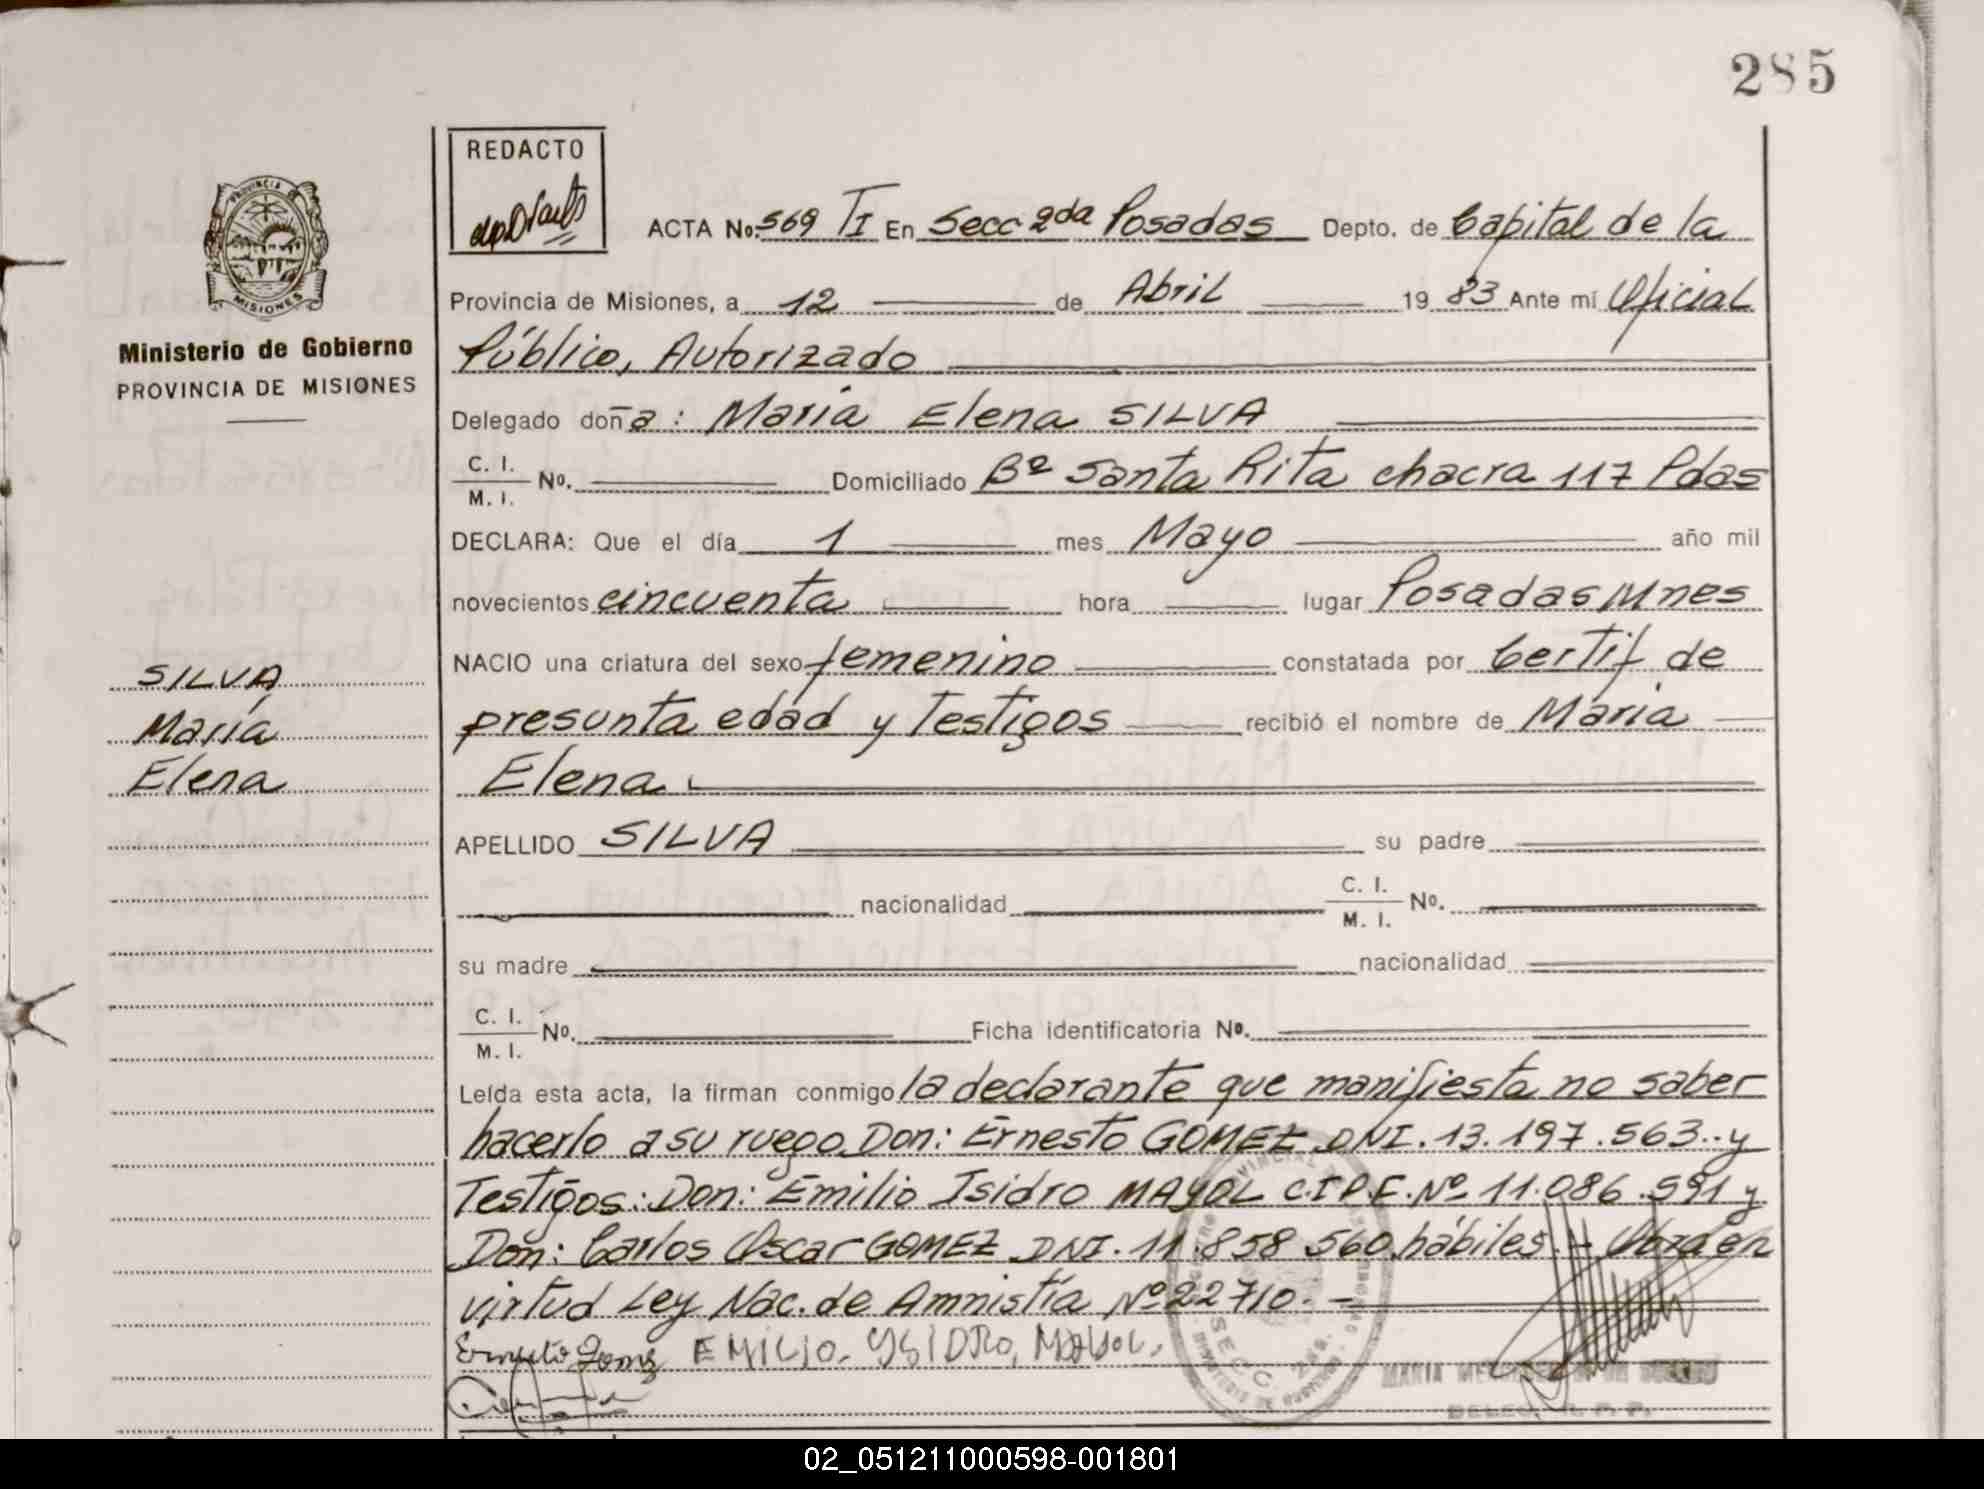 285
REDACTO
ACTA No. 569 TI En Secc 2da Posadas Depto. de Capital de la
Provincia de Misiones, a 12 de Abril 19 83 Ante mí Oficial
Público, Autorizado
Delegado doña: María Elena SILVA
C. I. / M. I. No. Domiciliado Bº Santa Rita chacra 117 Pdas
DECLARA: Que el día 1 mes Mayo año mil
novecientos cincuenta hora lugar Posadas Mnes
NACIO una criatura del sexo femenino constatada por Certif de
presunta edad y Testigos recibió el nombre de María
Elena
APELLIDO SILVA su padre
nacionalidad C. I. / M. I. No.
su madre nacionalidad
C. I. / M. I. No. Ficha identificatoria No.
Leída esta acta, la firman conmigo la declarante que manifiesta no saber
hacerlo a su ruego Don: Ernesto GOMEZ DNI. 13.197.563.. y
Testigos: Don: Emilio Isidro MAYOL C.I.P.F. Nº 11.086.591 y
Don: Carlos Oscar GOMEZ DNI. 11.858 560 hábiles.- Obra en
virtud Ley Nac. de Amnistía Nº 22710.-
Ernesto Gomez EMILIO. YSIDRO, MAYOL.
SECC. 2da.
MARIA
PROVINCIA DE
MISIONES
Ministerio de Gobierno
PROVINCIA DE MISIONES
SILVA
María
Elena
02_051211000598-001801